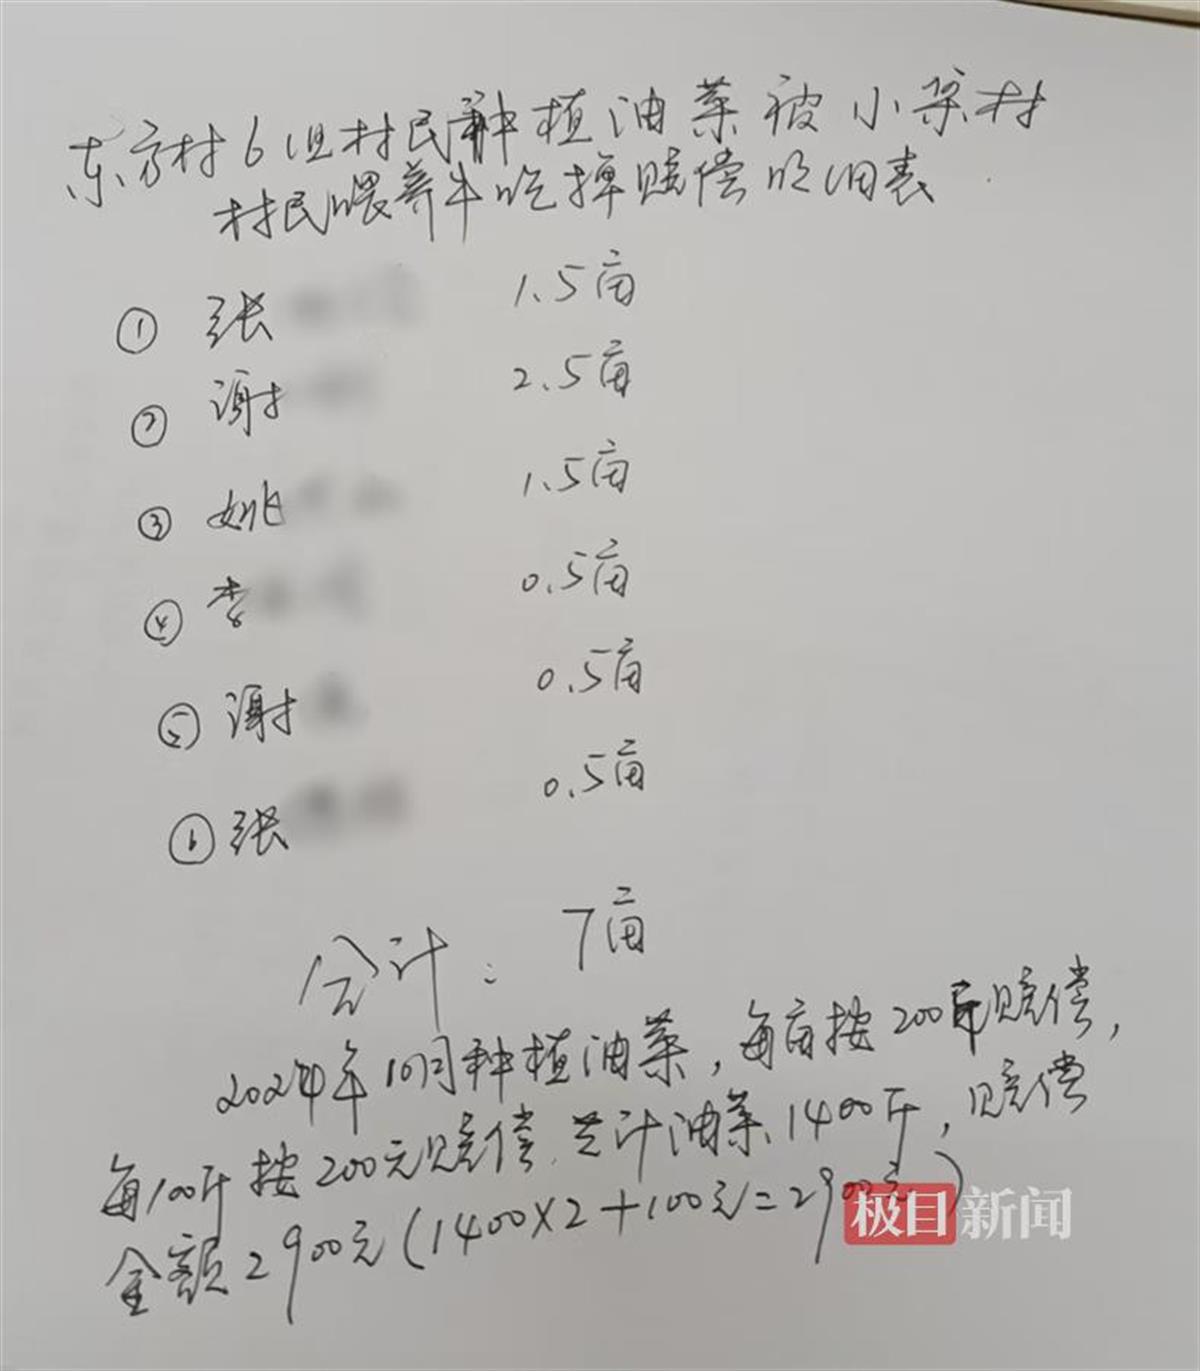 东方村6组村民种植油菜被小梁村
村民喂养牛吃掉赔偿明细表
① 张 1.5亩
② 谢 2.5亩
③ 姚 1.5亩
④ 李 0.5亩
⑤ 谢 0.5亩
⑥ 张 0.5亩
合计: 7亩
2024年10月种植油菜,每亩按200斤赔偿,
每100斤按200元赔偿.共计油菜1400斤,赔偿
金额2900元(1400×2+100元=2900元)
极目新闻